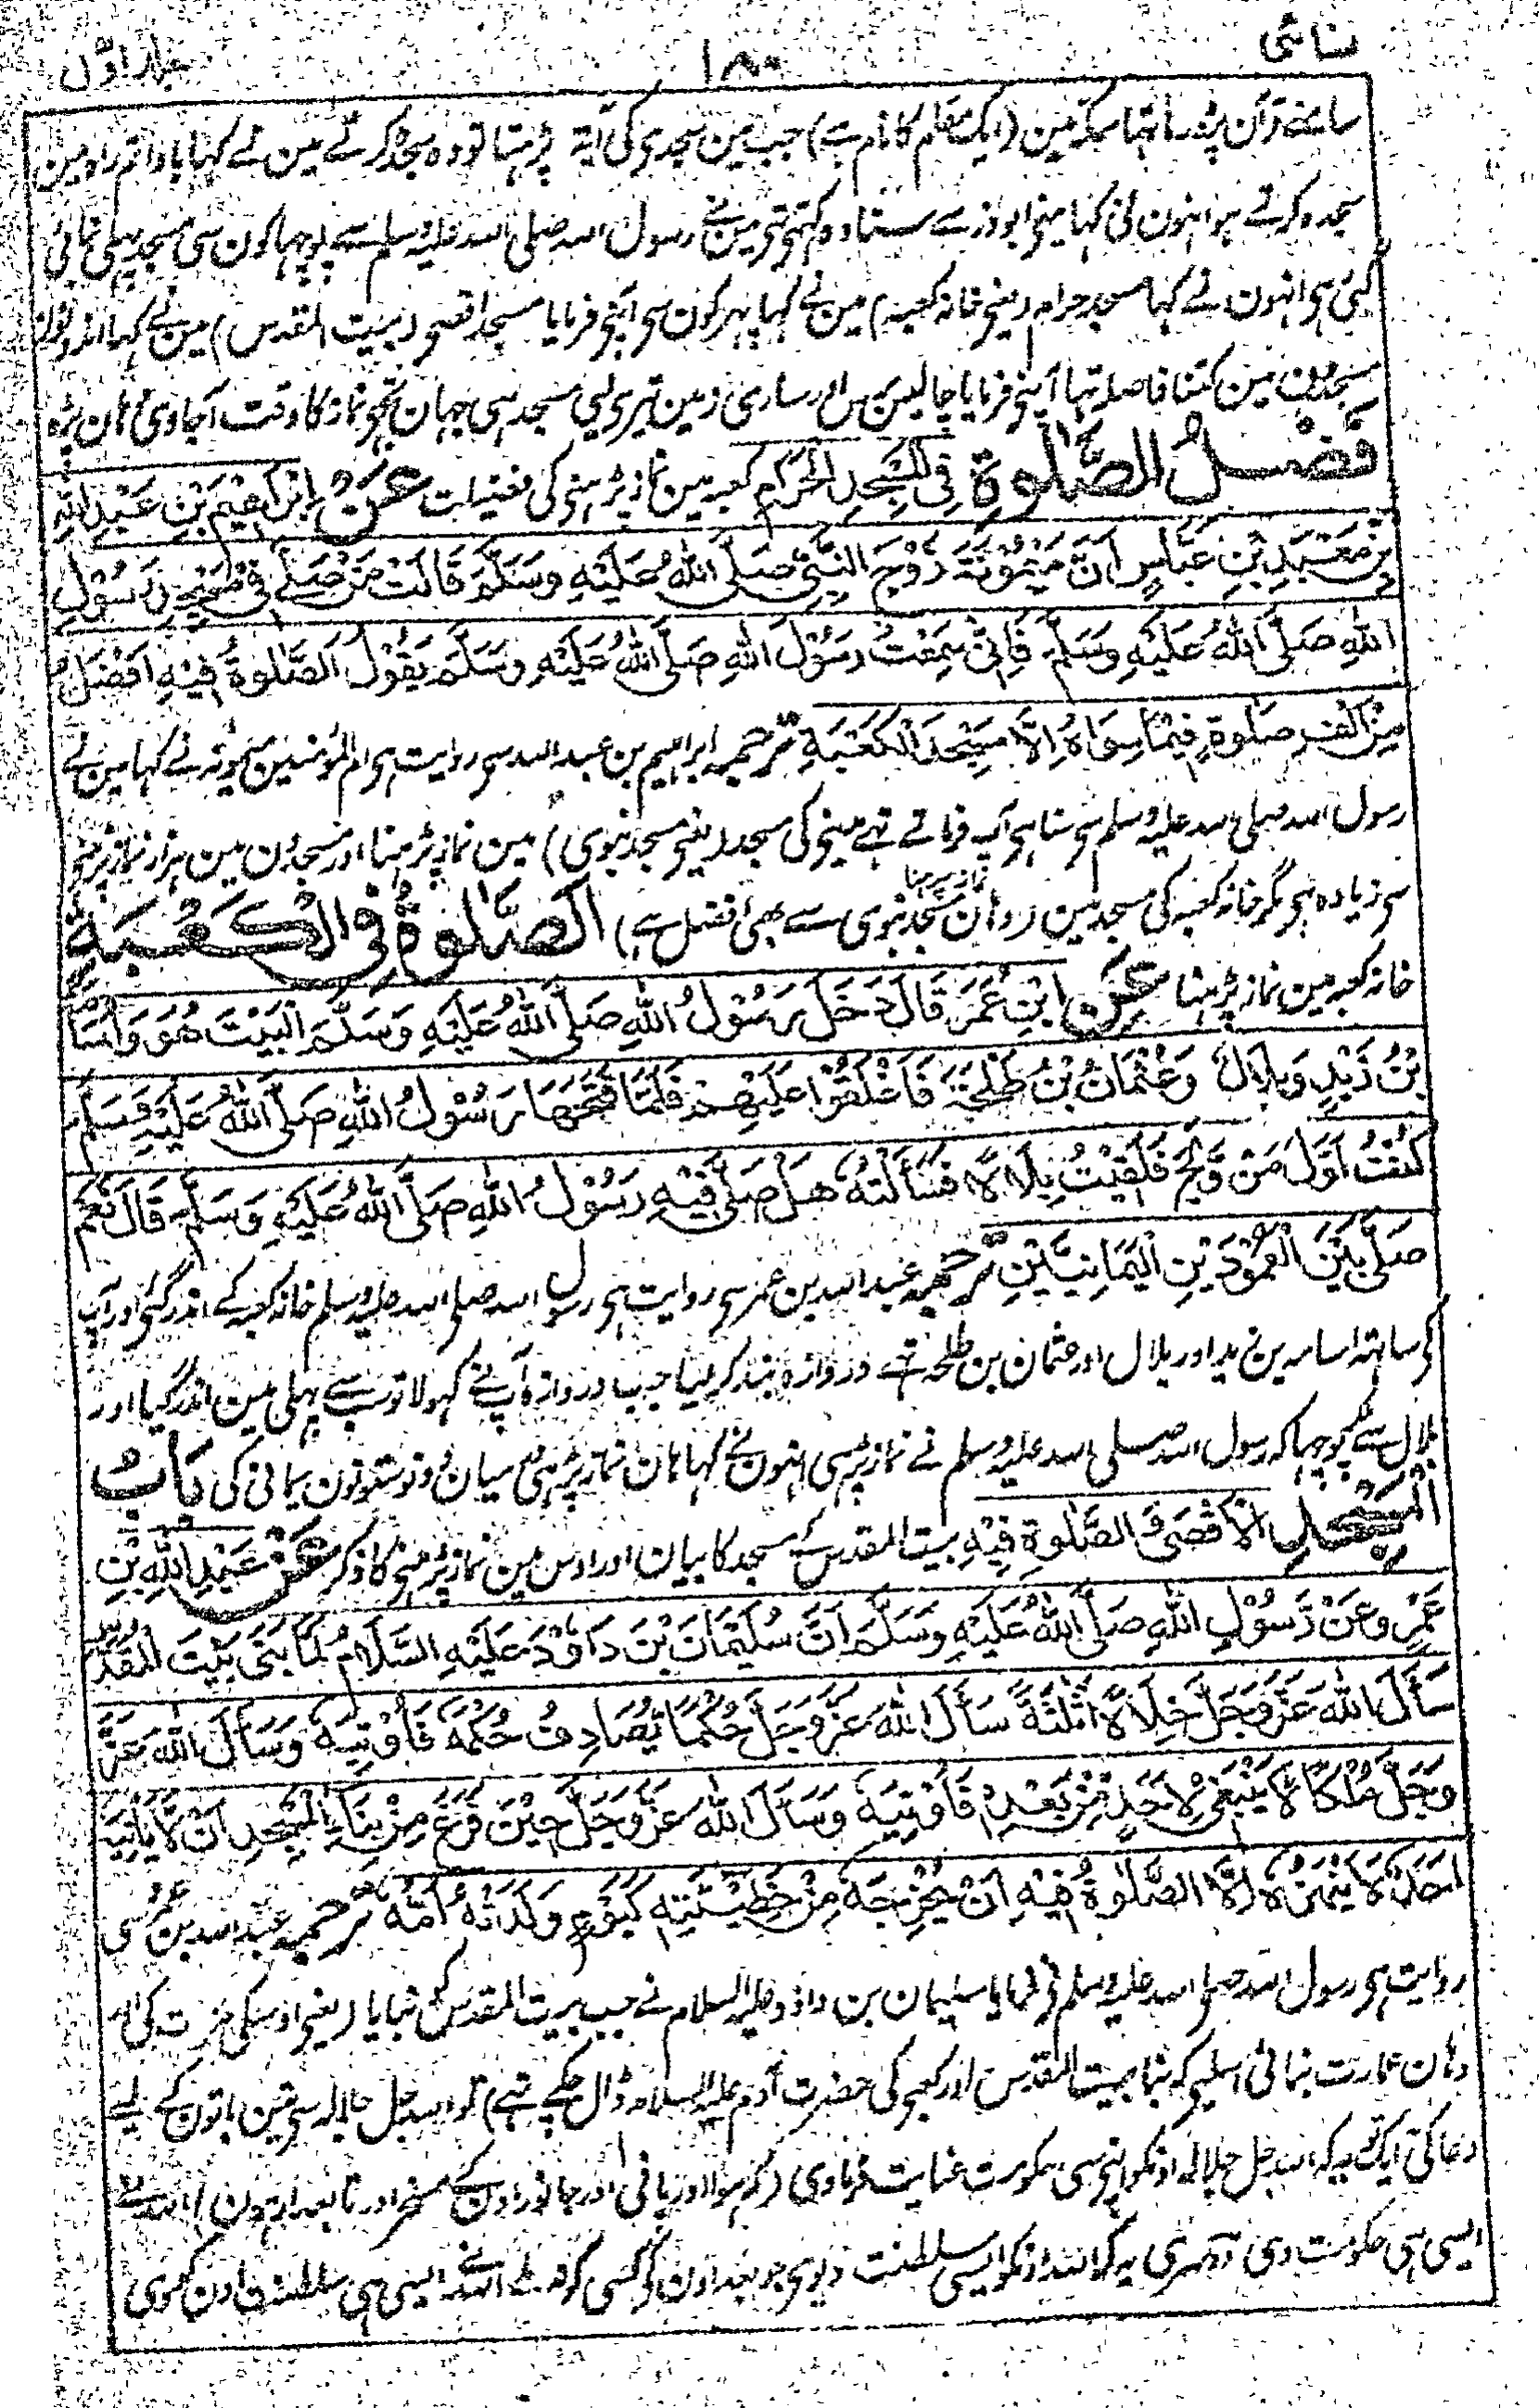 نسائی
۱۸۰
جلد اوّل
سامنے قرآن پڑہ رہا تہا سکہ مین (ایک مقام کا نام ہے) جب مین سجدی کی آیۃ پڑہتا تو وہ سجدہ کرتے مین نے کہا باوا تم راہ مین
سجدہ کرتے ہو انہون نی کہا مینی ابوذر سے سنا وہ کہتی تہی مین نے رسول اللہ صلی اللہ علیہ وسلم سے پوچہا کون سی مسجد پہلی بنائی
گئی ہی انہون نے کہا مسجد حرام (یعنی خانہ کعبہ) مین نے کہا پہر کون سی آپنی فرمایا مسجد اقصی (بیت المقدس) مین نے کہا ان دونون
مسجدون مین کتنا فاصلہ تہا آپنی فرمایا چالیس برس اور ساری زمین تیری لیی مسجد ہی جہان تجہی نماز کا وقت آجاوی وہان پڑہ
فَضْلُ الصَّلٰوةِ فِي الْمَسْجِدِ الْحَرَامِ کعبہ مین نماز پڑہنی کی فضیلت عَنْ اِبْرَاهِيْمَ بْنِ عَبْدِ اللهِ
بْنِ مَعْبَدِ بْنِ عَبَّاسٍ اَنَّ مَيْمُوْنَةَ زَوْجَ النَّبِيِّ صَلَّى اللهُ عَلَيْهِ وَسَلَّمَ قَالَتْ مَنْ صَلَّى فِيْ مَسْجِدِ رَسُوْلِ
اللهِ صَلَّى اللهُ عَلَيْهِ وَسَلَّمَ فَاِنِّيْ سَمِعْتُ رَسُوْلَ اللهِ صَلَّى اللهُ عَلَيْهِ وَسَلَّمَ يَقُوْلُ اَلصَّلٰوةُ فِيْهِ اَفْضَلُ
مِنْ اَلْفِ صَلٰوةٍ فِيْمَا سِوَاهُ اِلَّا مَسْجِدَ الْكَعْبَةِ ترجمہ ابراہیم بن عبد اللہ سی روایت ہی ام المؤمنین میمونہ نے کہا مین نے
رسول اللہ صلی اللہ علیہ وسلم سی سنا ہی آپ فرماتے تہے مینی کی مسجد (یعنی مسجد نبوی) مین نماز پڑہنا اور مسجدون مین ہزار نماز پڑہنی
سی زیادہ ہی مگر خانہ کعبہ کی مسجد مین (وہان نماز پڑہنا مسجد نبوی سے بھی افضل ہے) اَلصَّلٰوةُ فِي الْكَعْبَةِ
خانہ کعبہ مین نماز پڑہنا عَنِ ابْنِ عُمَرَ قَالَ دَخَلَ رَسُوْلُ اللهِ صَلَّى اللهُ عَلَيْهِ وَسَلَّمَ الْبَيْتَ هُوَ وَاُسَامَةُ
بْنُ زَيْدٍ وَبِلَالٌ وَعُثْمَانُ بْنُ طَلْحَةَ فَاَغْلَقُوْا عَلَيْهِمْ فَلَمَّا فَتَحَهَا رَسُوْلُ اللهِ صَلَّى اللهُ عَلَيْهِ وَسَلَّمَ
كُنْتُ اَوَّلَ مَنْ وَّلَجَ فَلَقِيْتُ بِلَالًا فَسَاَلْتُهُ هَلْ صَلَّى فِيْهِ رَسُوْلُ اللهِ صَلَّى اللهُ عَلَيْهِ وَسَلَّمَ قَالَ نَعَمْ
صَلَّى بَيْنَ الْعَمُوْدَيْنِ الْيَمَانِيَيْنِ ترجمہ عبد اللہ بن عمر سی روایت ہی رسول اللہ صلی اللہ علیہ وسلم خانہ کعبہ کے اندر گئی اور آپ
کی ساتہ اسامہ بن زید اور بلال اور عثمان بن طلحہ تہے دروازہ بند کر لیا جب دروازہ آپ نے کہولا تو سب سے پہلی مین اندر گیا اور
بلال سے پوچہا کہ رسول اللہ صلی اللہ علیہ وسلم نے نماز پڑہی انہون نے کہا ہان نماز پڑہی درمیان دونو ستونون یمانی کی بَابُ
الْمَسْجِدِ الْاَقْصٰى وَ الصَّلٰوةِ فِيْهِ بیت المقدس کے مسجد کا بیان اور اوس مین نماز پڑہنی کا ذکر عَنْ عَبْدِ اللهِ بْنِ
عَمْرٍو عَنْ رَّسُوْلِ اللهِ صَلَّى اللهُ عَلَيْهِ وَسَلَّمَ اَنَّ سُلَيْمَانَ بْنَ دَاوٗدَ عَلَيْهِ السَّلَامُ لَمَّا بَنٰى بَيْتَ الْمَقْدَسِ
سَاَلَ اللهَ عَزَّ وَجَلَّ خِلَالًا ثَلٰثَةً سَاَلَ اللهَ عَزَّ وَجَلَّ حُكْمًا يُّصَادِفُ حُكْمَهٗ فَاُوْتِيَهٗ وَسَاَلَ اللهَ عَزَّ
وَجَلَّ مُلْكًا لَّا يَنْبَغِيْ لِاَحَدٍ مِّنْ بَعْدِهٖ فَاُوْتِيَهٗ وَسَاَلَ اللهَ عَزَّ وَجَلَّ حِيْنَ فَرَغَ مِنْ بِنَاءِ الْمَسْجِدِ اَنْ لَّا يَاْتِيَهٗ
اَحَدٌ لَا يَنْهَزُهٗ اِلَّا الصَّلٰوةُ فِيْهِ اَنْ يُّخْرِجَهٗ مِنْ خَطِيْئَتِهٖ كَيَوْمِ وَلَدَتْهُ اُمُّهٗ ترجمہ عبد اللہ بن عمر سی
روایت ہی رسول اللہ صلی اللہ علیہ وسلم نی فرمایا سلیمان بن داؤد علیہ السلام نے جب بیت المقدس کو بنایا (یعنی اوسکی مرمت کی اور
وہان عمارت بنائی اسلیی کہ بنا بیت المقدس اور کعبی کی حضرت آدم علیہ السلام ڈال چکے تہے) تو اللہ جل جلالہ سی تین باتون کے لیے
دعا کی ایک تو یہ کہ اللہ جل جلالہ اونکو اپنی سی حکومت عنایت فرماوی (کہ ہوا اور پانی اور جانور اون کے مسخر اور تابعدار ہون) اللہ نے
ایسی ہی حکومت دی دوسری یہ کہ اللہ اونکو ایسی سلطنت دیوی جو بعد اون کی کسی کو نہ ملے اللہ نے ایسی ہی سلطنت اون کو دی